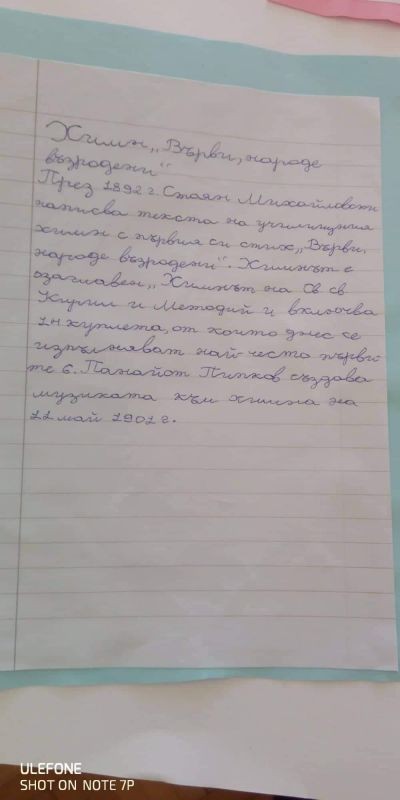 Химн „Върви, народе
възродени“
През 1892 г. Стоян Михайловски
написва текста на училищния
химн с първия си стих „Върви,
народе възродени“. Химнът е
озаглавен „Химнът на Св св
Кирил и Методий и включва
14 куплета, от които днес се
изпълняват най често първи
те 6. Панайот Пипков създава
музиката към химна на
11 май 1901 г.
ULEFONE
SHOT ON NOTE 7P